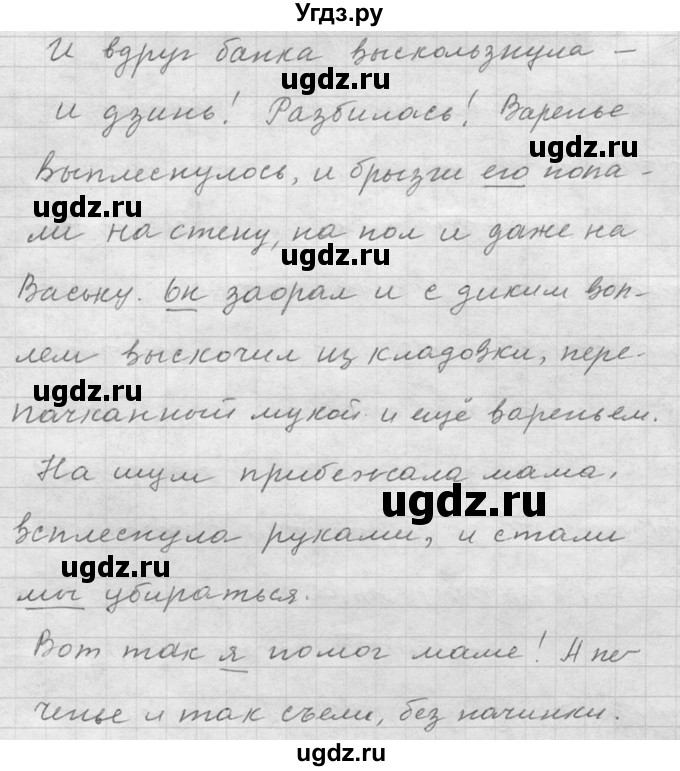 Угдз.ру
И вдруг банка выскользнула –
ugdz.ru
и дзинь! Разбилась! Варенье
ugdz.ru
выплеснулось, и брызги его попа-
ugdz.ru
ли на стену, на пол и даже на
ugdz.ru
Ваську. Он заорал и с диким воп-
лем выскочил из кладовки, пере-
ugdz.ru
пачканный мукой и ещё вареньем.
На шум прибежала мама,
ugdz.ru
всплеснула руками, и стали
ugdz.ru
мы убираться.
Вот так я помог маме! А пе-
ченье и так съели, без начинки.
ugdz.ru